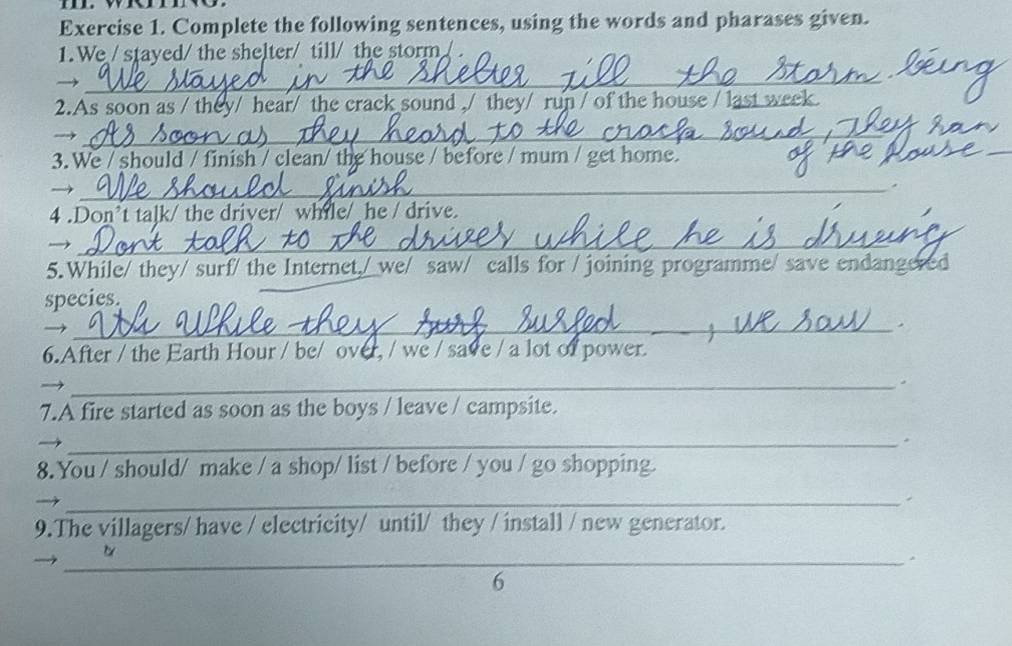 III. WRITING.
Exercise 1. Complete the following sentences, using the words and pharases given.
1.We / stayed/ the shelter/ till/ the storm / .
→ We stayed in the shelter till the storm. being
2.As soon as / they/ hear/ the crack sound ,/ they/ run / of the house / last week.
→ As soon as they heard to the crack sound, They ran
of the house
3.We / should / finish / clean/ the house / before / mum / get home.
→ We should finish .
4 .Don't talk/ the driver/ while/ he / drive.
→ Don't talk to the driver while he is driveing
5.While/ they/ surf/ the Internet,/ we/ saw/ calls for / joining programme/ save endangered
species.
→ While they surf surfed , we saw .
6.After / the Earth Hour / be/ over, / we / save / a lot of power.
→ .
7.A fire started as soon as the boys / leave / campsite.
→ .
8.You / should/ make / a shop/ list / before / you / go shopping.
→ .
9.The villagers/ have / electricity/ until/ they / install / new generator.
→ .
6